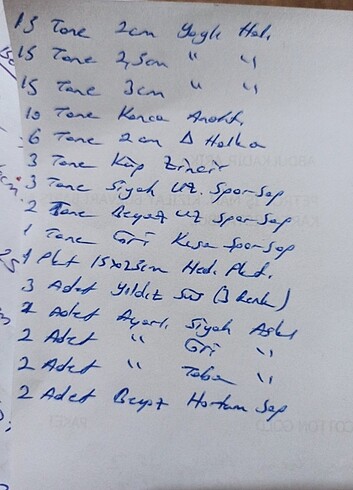 15 Tane 2cm Yağlı Hal.
15 Tane 2,5cm " "
15 Tane 3cm " "
10 Tane Kanca Anaht.
6 Tane 2cm Δ Halka
3 Tane Küp Zincir
3 Tane Siyah Uz. Spor Sap
2 Tane Beyaz Uz Spor Sap
1 Tane Gri Kısa Spor Sap
1 Pkt 15x25cm Hed. Pkt.
3 Adet Yıldız Süs (3 Renk)
2 Adet Ayarlı Siyah Askı
2 Adet " Gri "
2 Adet " Taba "
2 Adet Beyaz Hortum Sap
COTTON GOLD